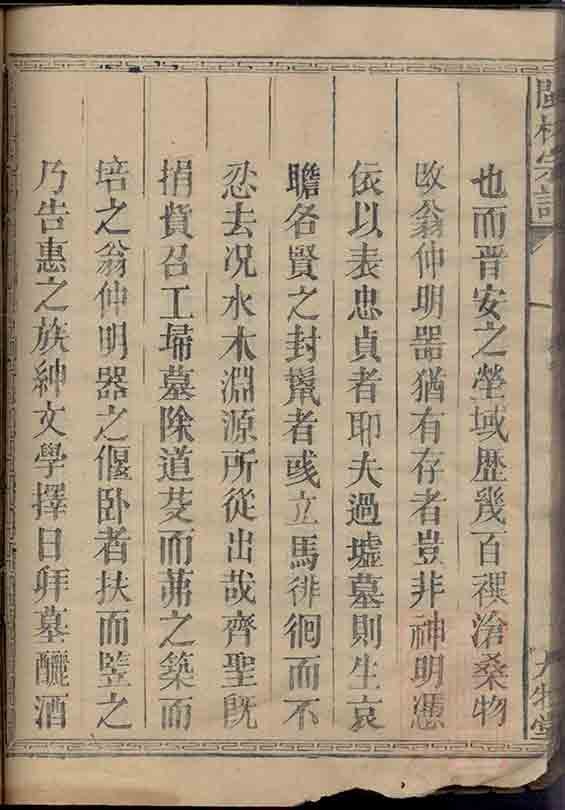 閩林宗譜
一
九牧堂
也而晋安之塋域歷幾百禩滄桑物
改翁仲明器猶有存者豈非神明憑
依以表忠貞者耶夫過墟墓則生哀
瞻名賢之封鬣者或立馬徘徊而不
忍去况水木淵源所從出哉齊聖旣
捐貲召工埽墓除道芟而茀之築而
培之翁仲明器之偃卧者扶而豎之
乃告惠之族紳文學擇日拜墓釃酒